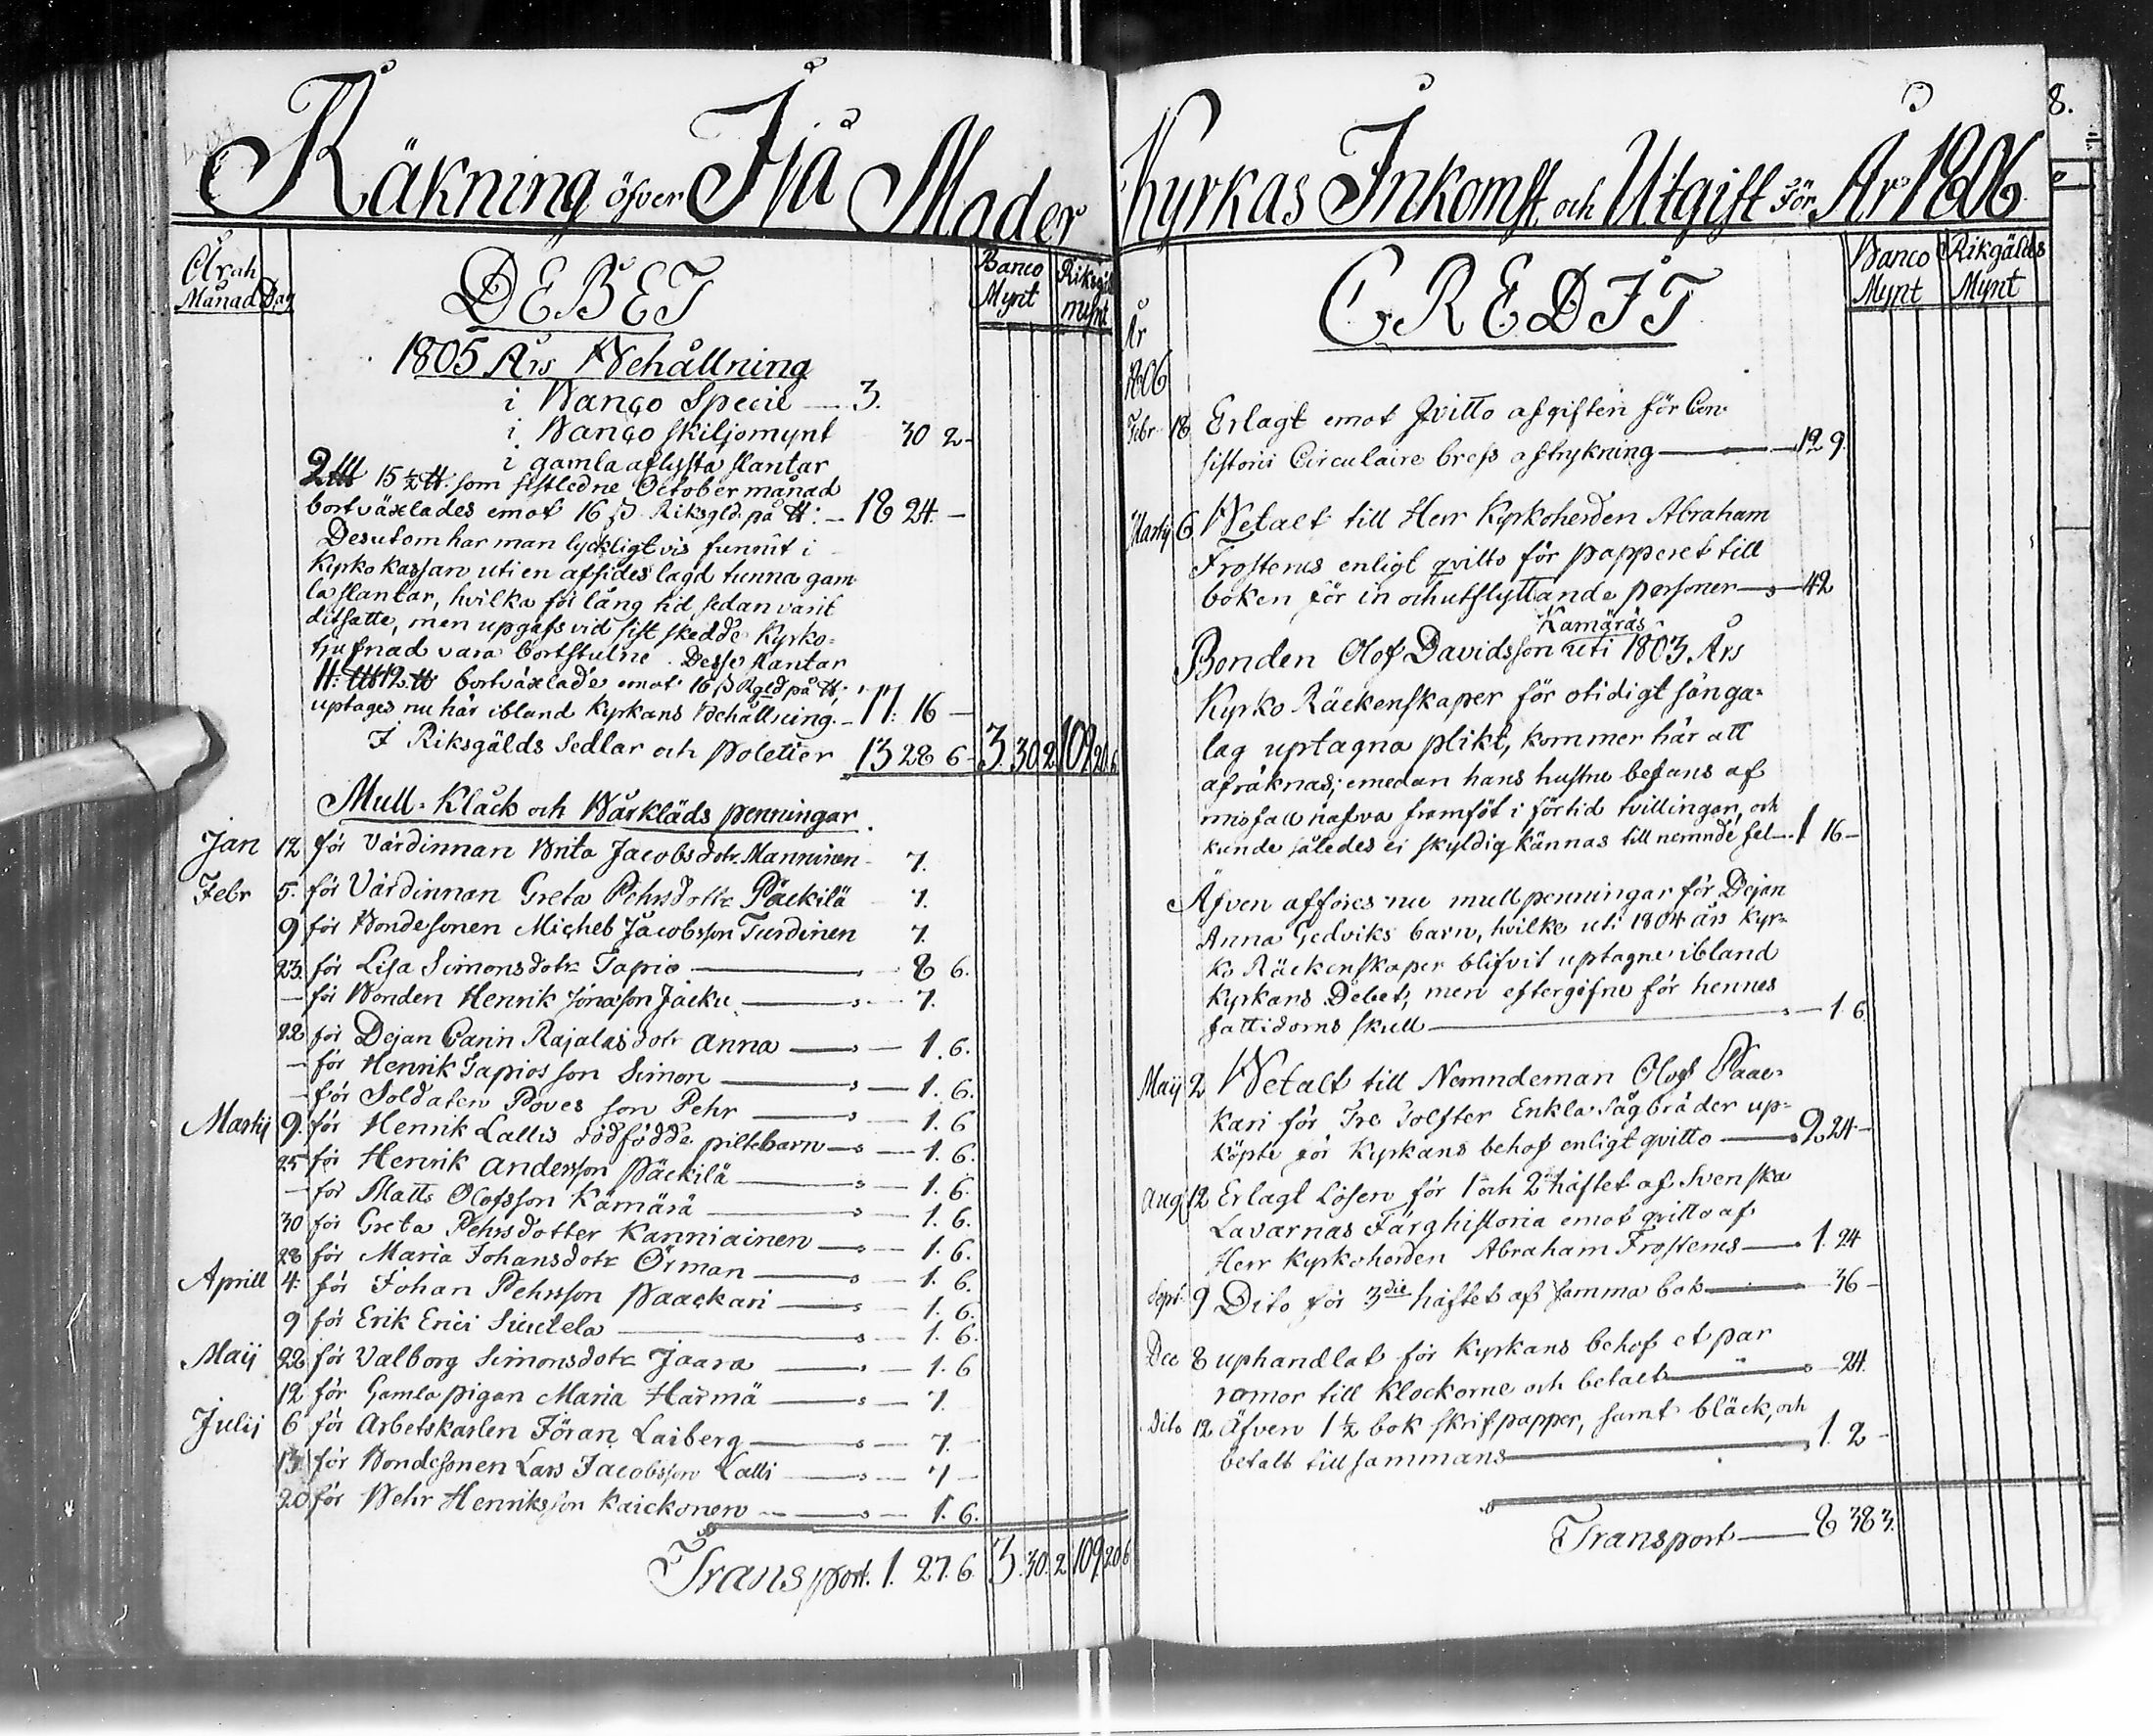 Räkning öfver Ijå Moder
Åroch
Månad Dag
DEBET
Banco
Mynt
Riksgäl
mynt
1805 Års Behållning
i Banço Specie — 3.
i Banço skiljomynt 30 2-
i gamla aflysta slantar
15 ½ ℔: som sistledne October månad
bortväxlades emot 16 ß Riksgld. på ℔: — 18 24. —
Desutom har man lyckligtvis funnit i
Kyrko kassan uti en afsides lagd tunna gam
la slantar, hvilka för lång tid sedan varit
ditsatte, men upgafs vid sist skedde Kyrko=
tjufnad vara bortstulne. Desse slantar
bortväxlade emot 16 ß Rgld på ℔:
uptages nu här ibland Kyrkans Behållning. — 17: 16 —
I Riksgälds Sedlar och Poletter 13 28 6 - 3. 30 2 109 20. 6
Mull- Klåck och Bårkläds penningar.
Jan 12 för Värdinnan Brita Jacobsdotr. Manninen - 7.
Febr 5. för Värdinnan Greta Pehrsdottr Päckilä - 7.
9 för Bondesonen Micheb Jacobsson Turdinen 7.
23. för Lisa Simonsdotr Tapio — 8 6.
— för Bonden Henrik Jonasson Jäcku — 7.
22 för Dejan Carin Rajalas dotr Anna — 1. 6.
— för Henrik Tapios son Simon — 1. 6.
— för Soldaten Poves son Pehr — 1. 6
Martij 9. för Henrik Lallis dödfödde piltebarn — 1. 6.
25 för Henrik Andersson Päckilä — 1. 6.
— för Matts Olofsson Kämärä — 1. 6.
30 för Greta Pehrsdotter Kanniainen — 1. 6.
28 för Maria Johansdotr Örman — 1. 6.
Aprill 4. för Johan Pehrsson Paackari — 1. 6.
9 för Erik Erici Siutela — 1. 6.
Maij 22 för Valborg Simonsdotr Jaara — 1. 6
12 för Gamla pigan Maria Härmä — 7.
Julij 6 för Arbetskarlen Jöran Laiberg — 7.
13. för Bondesonen Lars Jacobsson Lalli — 7 —
20 för Pehr Henriksson Kaickonen — 1. 6.
Transport. 1. 27. 6. 3. 30. 2 109. 20 6
Kyrkas Inkomst och Utgift För År 1806.
8.
CREDIT
Banco
Mynt
Rikgälds
Mynt
År
1806
Febr 18 Erlagt emot Qvitto afgiften för Con-
sistorii Circulaire brefs aftrykning — 12 9.
Martij 6 Betalt till Herr Kyrkoherden Abraham
Frosterus enligt qvitto för papperet till
boken för in och utflyttande personer — 42
Kamäräs
Bonden Olof Davidsson uti 1803 Års
Kyrko Räckenskaper för otidigt sänga=
lag uptagna plikt, kommer här att
afräknas; emedan hans hustru befans af
misfall hafva framföt i förtid tvillingar, och
kunde således ei skyldig kännas till nemnde fel — 1 16 —
Äfven afföres nu mullpenningar för Dejan
Anna Gedviks barn, hvilka uti 1804 års Kyr=
ko Räckenskaper blifvit uptagne ibland
Kyrkans Debet, men eftergifne för hennes
fattidoms skull — 1. 6.
Maij 2 Betalt till Nemndeman Olof Paac-
kari för Tre Tolfter Enkla Sågbräder up=
köpte för Kyrkans behof enligt qvitto — 2. 24 —
Aug. 12 Erlagt Lösen för 1 och 2 häftet af Svenska
Lavarnas Färghistoria emot qvitto af
Herr Kyrkoherden Abraham Frosterus — 1. 24
Sept. 9 Dito för 3die häftet af samma bok — 36 —
Dec 8 uphandlat för Kyrkans behof et par
romor till Klockorne och betalt — 24.
Dito 12 Äfven 1 ½ bok skrifpapper, samt bläck, och
betalt tillsammans — 1. 2 —
Transport — 8 38 3.